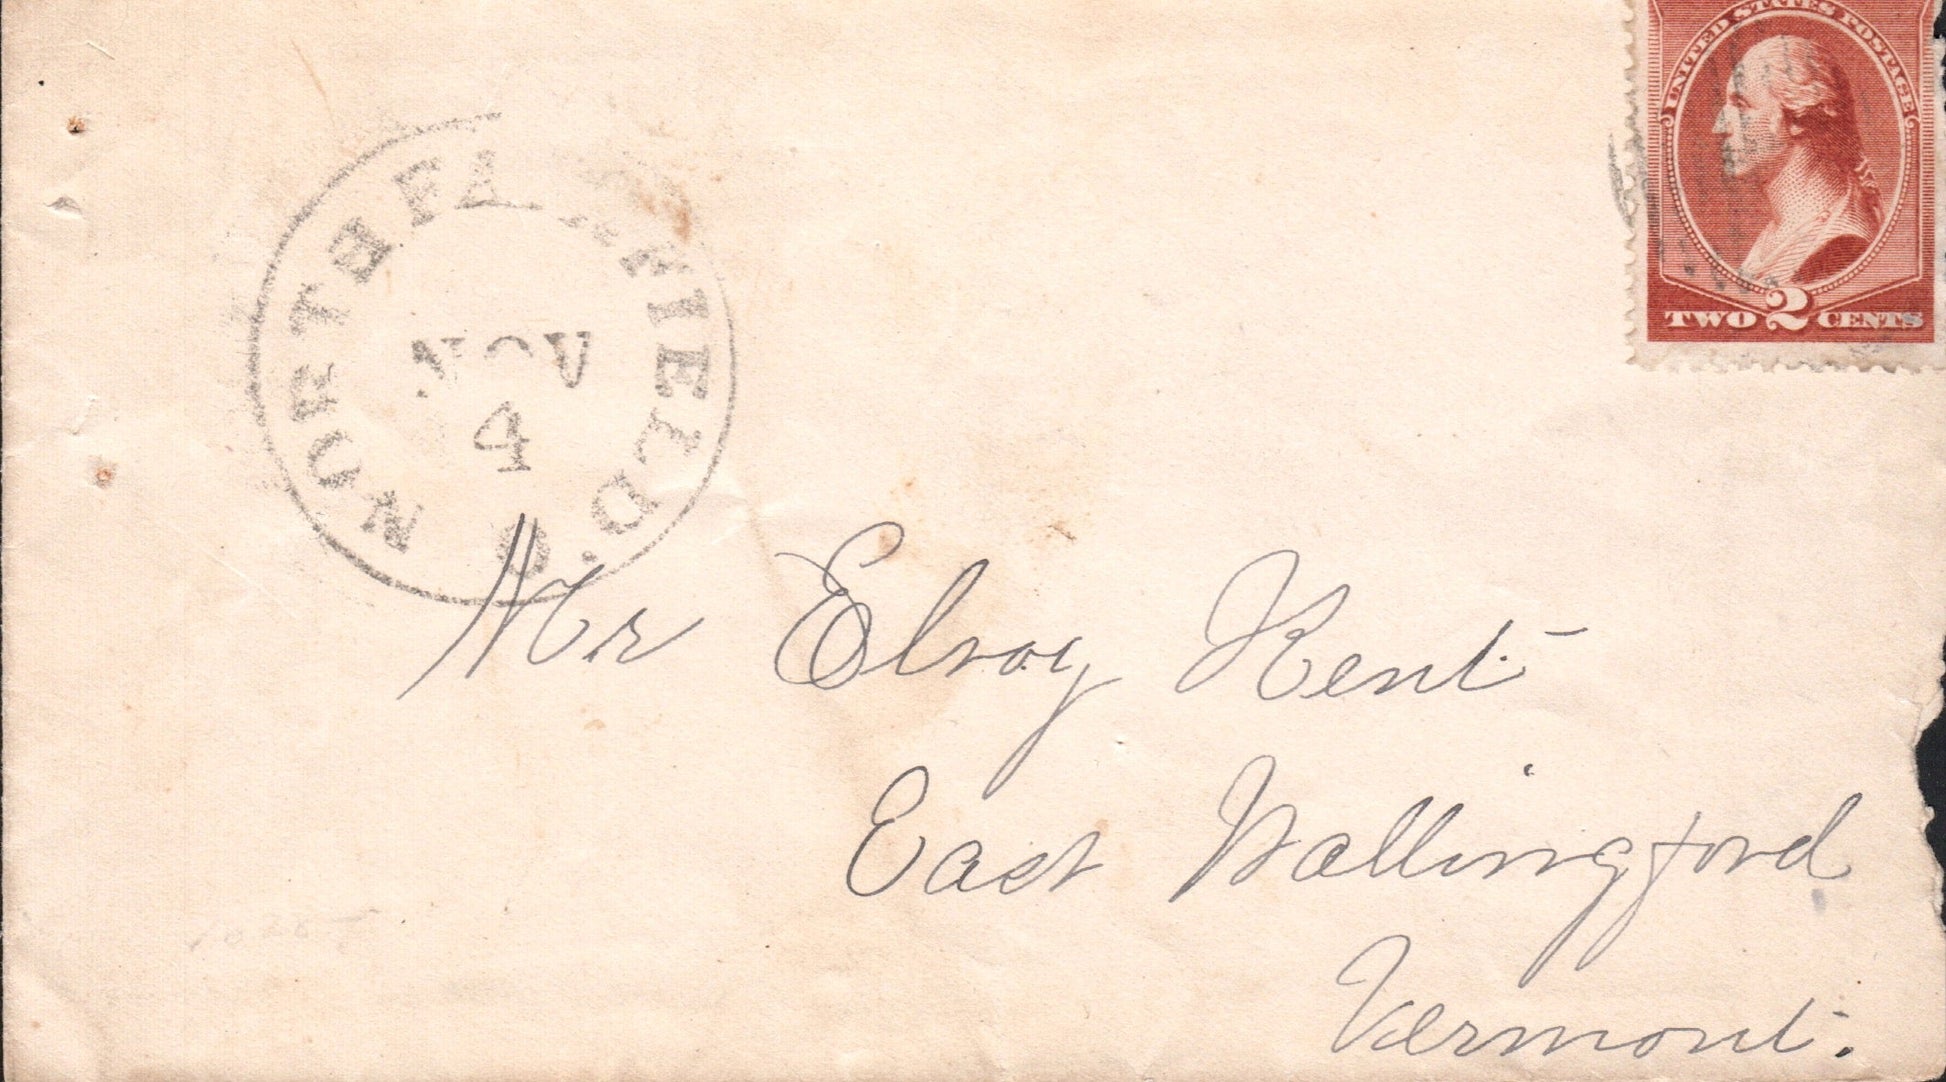 UNITED STATES POSTAGE
TWO 2 CENTS
NORTH FAIRFIELD. O
NOV
4
Mr Elroy Kent
East Wallingford
Vermont.